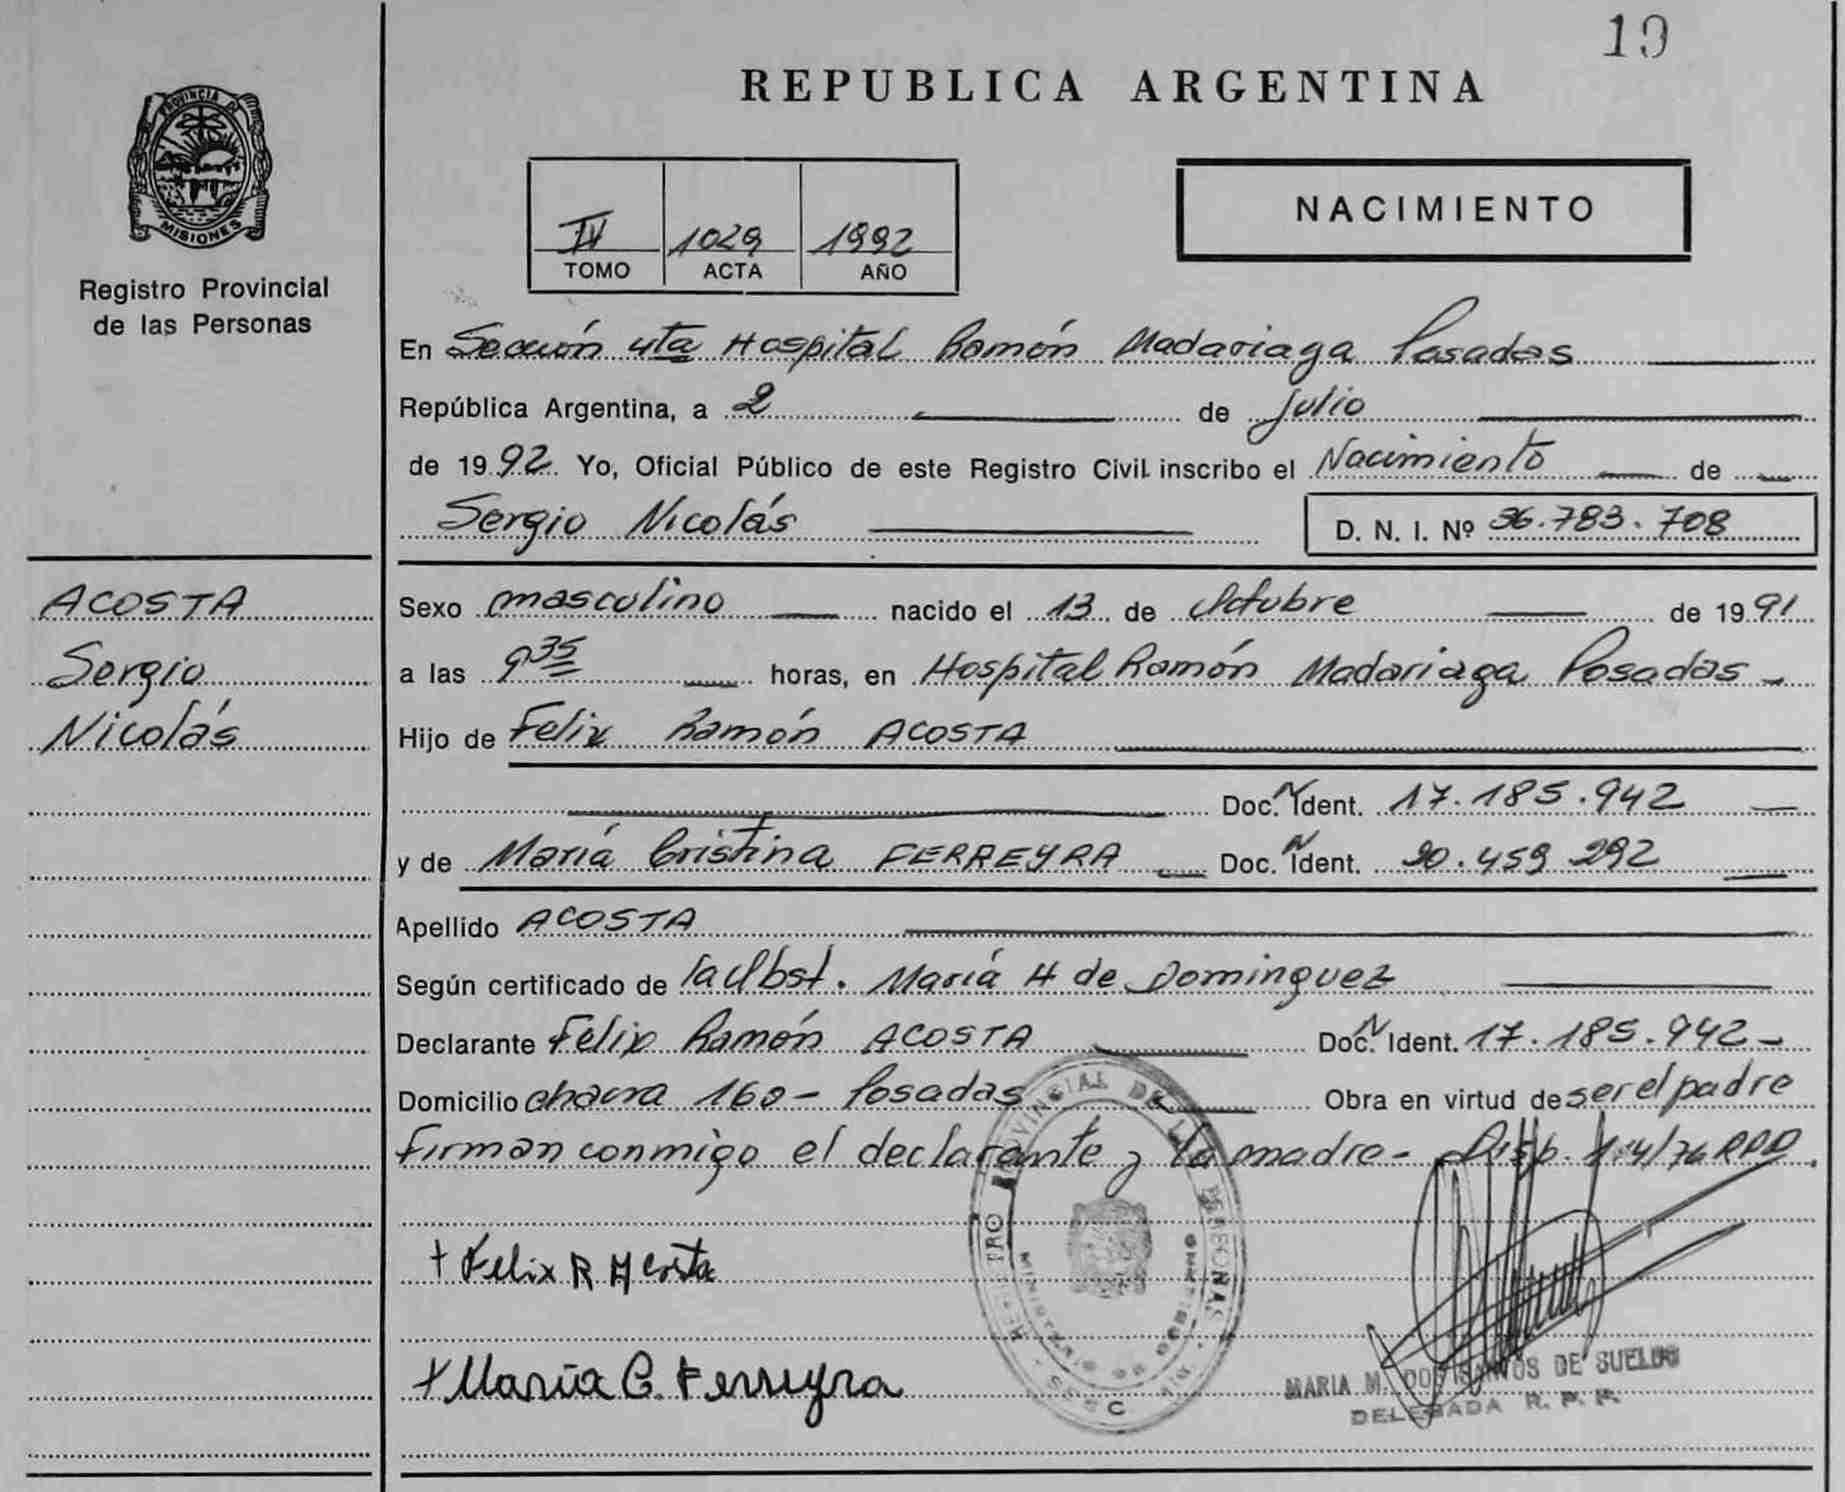 19
REPUBLICA ARGENTINA
PROVINCIA DE
MISIONES
Registro Provincial
de las Personas
NACIMIENTO
IV 1029 1992
TOMO ACTA AÑO
En Sección 4ta Hospital Ramón Madariaga Posadas
República Argentina, a 2 de Julio
de 1992 Yo, Oficial Público de este Registro Civil inscribo el Nacimiento de
Sergio Nicolás D. N. I. Nº 36.783.708
ACOSTA
Sergio
Nicolás
Sexo masculino nacido el 13 de Octubre de 1991
a las 9 35 horas, en Hospital Ramón Madariaga Posadas
Hijo de Felix Ramón ACOSTA
Doc. N Ident. 17.185.942
y de María Cristina FERREYRA Doc. N Ident. 20.459.292
Apellido ACOSTA
Según certificado de la Obst. María H de Dominguez
Declarante Felix Ramón ACOSTA Doc. N Ident. 17.185.942
Domicilio chacra 160 - Posadas Obra en virtud de ser el padre
Firman conmigo el declarante y la madre - Disp.
+ Felix R Acosta
+ María C. Ferreyra
MARIA M. DOS SANTOS DE SUELDO
DELEGADA R. P. P.